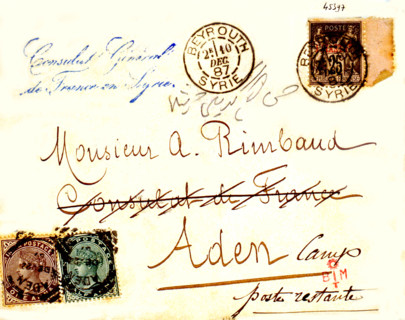 45597
BEYROUTH
2E 10
DEC
87
SYRIE
POSTE
25
SYRIE
Consulat Général
de France en Syrie
Monsieur A. Rimbaud
Consulat de France
Aden Camp
BIM
poste restante
POSTAGE
ADEN